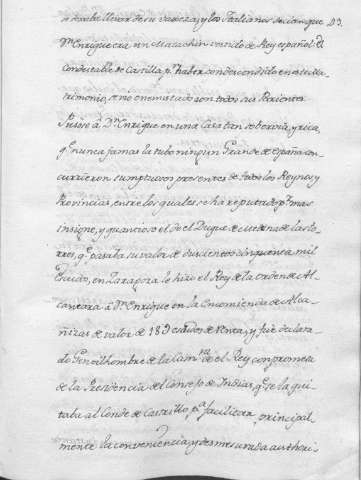 se dexaba llevar de su cabeza, y los Italianos decian que
Dⁿ Enrique era un Matachin vestido de Rey español. el
Condestable de Castilla pʳ haber condescendido en este Ma-
trimonio, se vio enemistado con todos sus Parientes
Pusose á Dⁿ Enrique en una Casa tan soberuia, y rica,
qᵉ nunca jamas la tubo ningun Grande de España con-
currieron sumptuosos presentes de todos los Reynos, y
Provincias, entre los quales se ha reputado pʳ mas
insigne, y quantioso el de el Duque de Medina de las To-
rres, qᵉ pasaba su valor de duscientos cinquenta mil
Escudos, en Zaragoza le hizo el Rey de la orden de Al-
cantara á Dⁿ Enrique en la Encomienda de Alca-
ñizas de valor de 18 escudos de Renta, y fue declara-
do Gentilhombre de la Camʳᵃ de el Rey con promesa
de la Presidencia del Consejo de Indias, qᵉ se la qui-
taba al Conde de Castrillo, pᵃ facilitar, principal-
mente la conveniencia, y desmesurada authori-